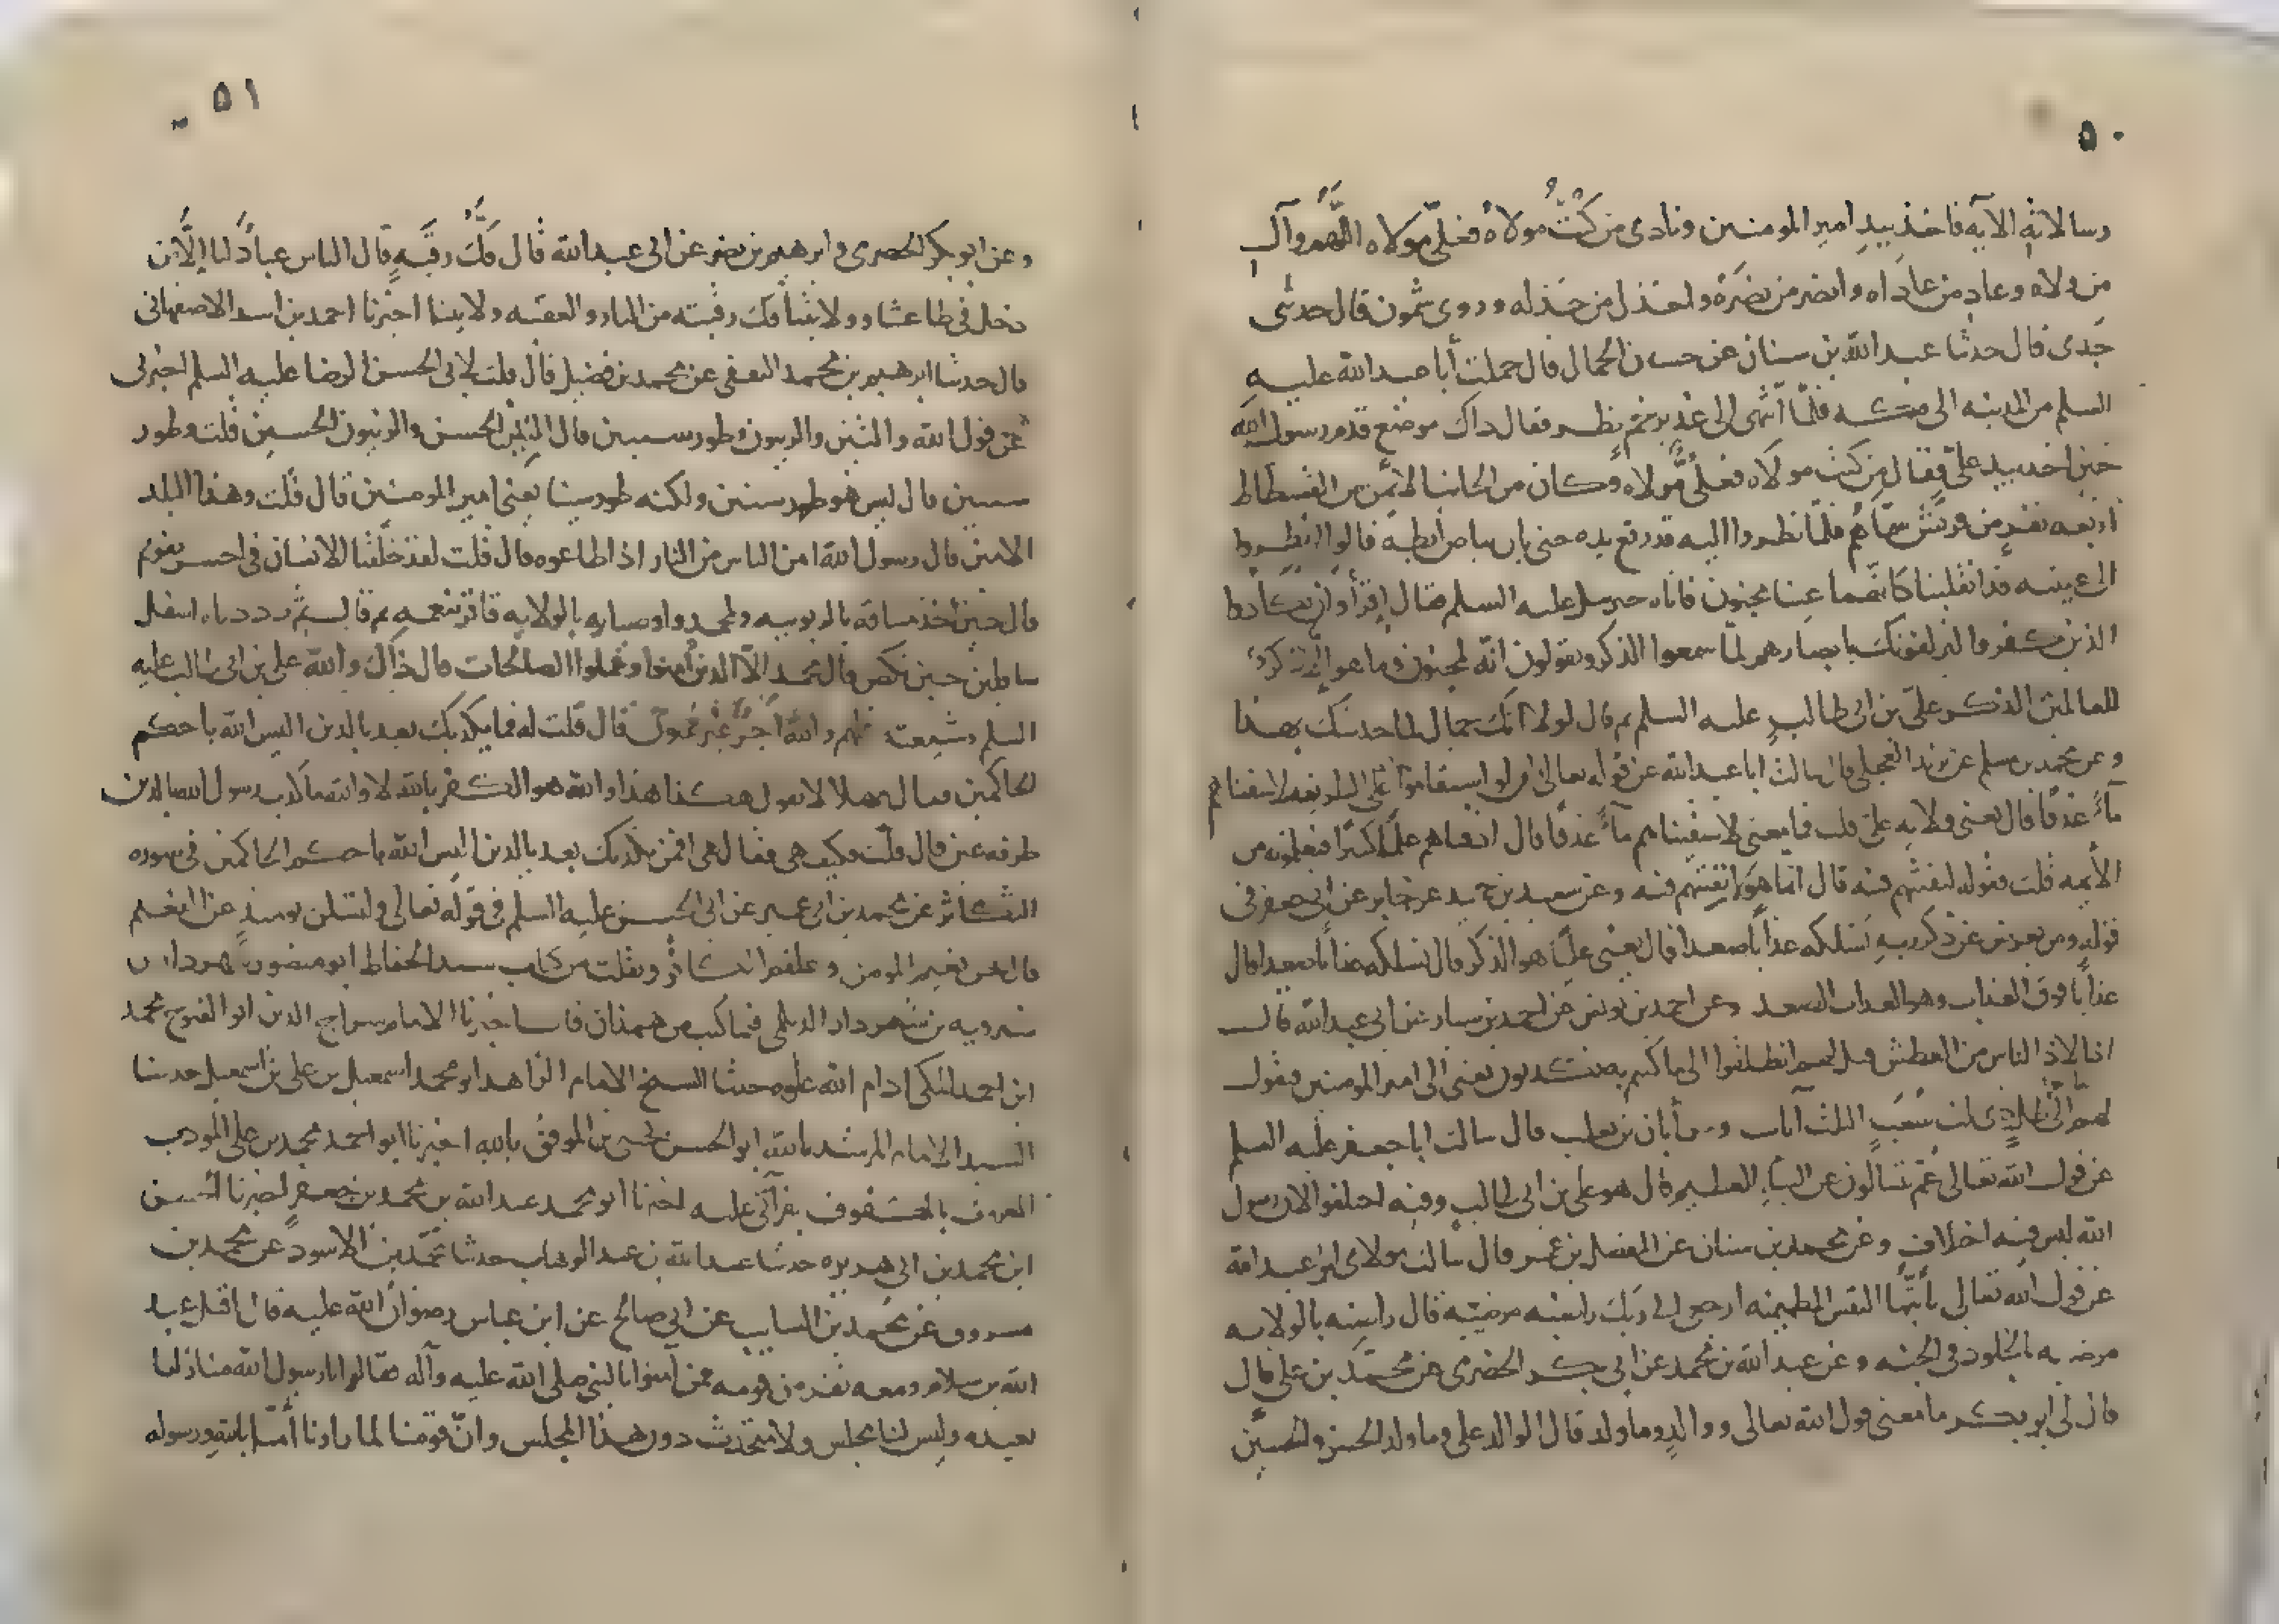 ٥٠
رسالاته الآيه فاخذ بيد امير المومنين ونادى من كُنْتُ مولاهُ فعليّ مولاه اللَّهُمَّ وآلِ
من ولاه وعادِ من عاداه وانصر من نصَرَهُ واخذل من خذله وروى شمون قال حدثنى
جَدى قال حدثنا عبد الله بن سنان عن حسان الجمال قال حملت أبا عبد الله عليه
السلم من المدينه الى مكه فلمّا انتهى الى غدير خم نظر فقال ذاك موضع قدم رسول الله
حين اخذ بيد علىّ فقال من كنت مولاه فعلىٌّ مَولاهُ وكان من الجانب الايمن من الفسطاط
اربعه نفرٍ من قريش سمّاهُم فلمّا نظروا اليه قد رفع يده حتى بان بياض أبطيه قالوا انظروا
الى عينيه قد انقلبتا كانهما عينا مجنون فاتاه جبريل عليه السلم فقال اقرأ وان يكاد
الذين كفروا ليزلقونك بابصارهم لمّا سمعوا الذكر ويقولون انه لمجنون وما هو الا ذكرٌ
للعالمين الذكر علىّ بن ابى طالبٍ عليه السلم ثم قال لولا انّك جمال لما حدثتك بهذا
وعن محمد بن مسلم عن بريد العجلى قال سالت ابا عبد الله عن قوله تعالى وان لو استقاموا على الطريقه لاسقيناهم
مآءً غدقًا قال يعنى ولايه علىّ قلت فما معنى لاسقيناهم مآءً غدقًا قال اذقناهم علمًا كثيرًا فيعلمونه من
الأيمه قلت فقوله لنفتنهم فيه قال انما هولا نفتنهم فيه وعن سعيد بن حميد عن جابر عن ابى جعفر فى
قوله ومن يعرض عن ذكر ربهِ نسلكه عذابًا صعدا قال يعنى عليًا هو الذكر قال نسلكه عذابًا صعدا قال
عذابًا فوق العذاب وهو العذاب الصعد وعن احمد بن يونس عن احمد بن سيار عن ابى عبد الله قال
اذا لاذ الناس من العطش قيل لهم انطلقوا الى ما كنتم به تكذبون يعنى الى امير المومنين فيقول
لهم الى ظلٍّ ذى ثلث شُعَبٍ الثلث آيات وعن أبان بن تغلب قال سالت ابا جعفر عليه السلم
عن قول الله تعالى عَمَّ يتسآلون عن النبأِ العظيم قال هو على بن ابى طالب وفيه اختلفوا لان رسول
الله ليس فيه اختلاف وعن محمد بن سنان عن المفضل بن عمر قال سالت مولاى ابى عبد الله
عن قول الله تعالى يأيَّتُها النفس المطمينه ارجعى الى ربك راضيه مرضيّه قال راضيه بالولايه
مرضيه بالخلود فى الجنه وعن عبد الله بن محمد عن ابى بكر الحضرمى عن محمّد بن على قال
قال لى ابو بكر ما معنى قول الله تعالى ووالدٍ وما ولد قال الوالد على وما ولد الحسن والحسين
٥١
وعن ابو بكر الحضرمى وابرهيم بن نصر عن ابى عبد الله قال فَكُّ رقبَةٍ قال الناس عبادٌ لنا إلّا من
دخل فى طاعتنا وولايتنا فك رقبته من النار والعقبه ولايتنا اخبرنا احمد بن اسد الاصفهانى
قال حدثنا ابرهيم بن محمد الثقفى عن محمد بن فضيل قال قلت لابى الحسن الرضا عليه السلم اخبرنى
عن قول الله والتين والزيتون وطور سينين قال التين الحسن والزيتون الحسين قلت وطور
سينين قال ليس هو طور سينين ولكنه طور سينا يعنى امير المومنين قال قلت وهذا البلد
الامين قال رسول الله امن الناس من النار اذا اطاعوه قال قلت لقد خلقنا الانسان فى احسن تقويم
قال حين أخذ ميثاقه بالربوبيه ولمحمد واوصيايه بالولايه فاقر بنعمه ثم قال ثم رددناه اسفل
سافلين حين نكص قال محمد الّا الذين أمنوا وعملوا الصالحات قال ذاك والله على بن ابى طالب عليه
السلم وشيعته فلهم والله اجرٌ غير ممنون قال قلت له فما يكذبك بعد بالدين اليس الله باحكم
الحاكمين فقال مهلا لا تقول هكذا هذا والله هو الكفر بالله لا والله ما كذب رسول الله بالدين
طرفه عين قال قلت وكيف هى فقال هى افمن يكذبك بعد بالدين اليس الله باحكم الحاكمين فى سوره
التكاثر عن محمد بن ابى عمير عن ابى الحسن عليه السلم فى قوله تعالى ولتسلن يوميذٍ عن النعيم
قال نحن نعيم المومن وعلقم الكافر ونقلت من كتاب سيد الحفاظ ابو منصور شهردار بن
شيرويه بن شهردار الديلمى فيما كتب من همذان قال اخبرنا الامام سراج الدين ابو الفتوح محمد
ابن احمد المكى ادام الله علوه حدثنا الشيخ الامام الزاهد ابو محمد اسمعيل بن على بن اسمعيل حدثنا
السيد الامام المرشد بالله ابو الحسين يحيى بن الموفق بالله اخبرنا ابو احمد محمد بن على المودب
المعروف بالمكفوف بقرآتى عليه اخبرنا ابو محمد عبد الله بن محمد بن جعفرٍ اخبرنا الحسين
ابن محمد بن ابى هريره حدثنا عبد الله بن عبد الوهاب حدثنا محمّد بن الاسود عن محمد بن
مسروق عن محمد بن السايب عن ابى صالح عن ابن عباس رضوان الله عليه قال اقبل عبد
الله بن سلام ومعه نفر من قومه ممن آمنوا بالنبى صلى الله عليه وآله فقالوا يا رسول الله منازلنا
بعيده وليس لنا مجلس ولا متحدث دون هذا المجلس وانّ قومنا لما راونا أمنّا بالله ورسوله